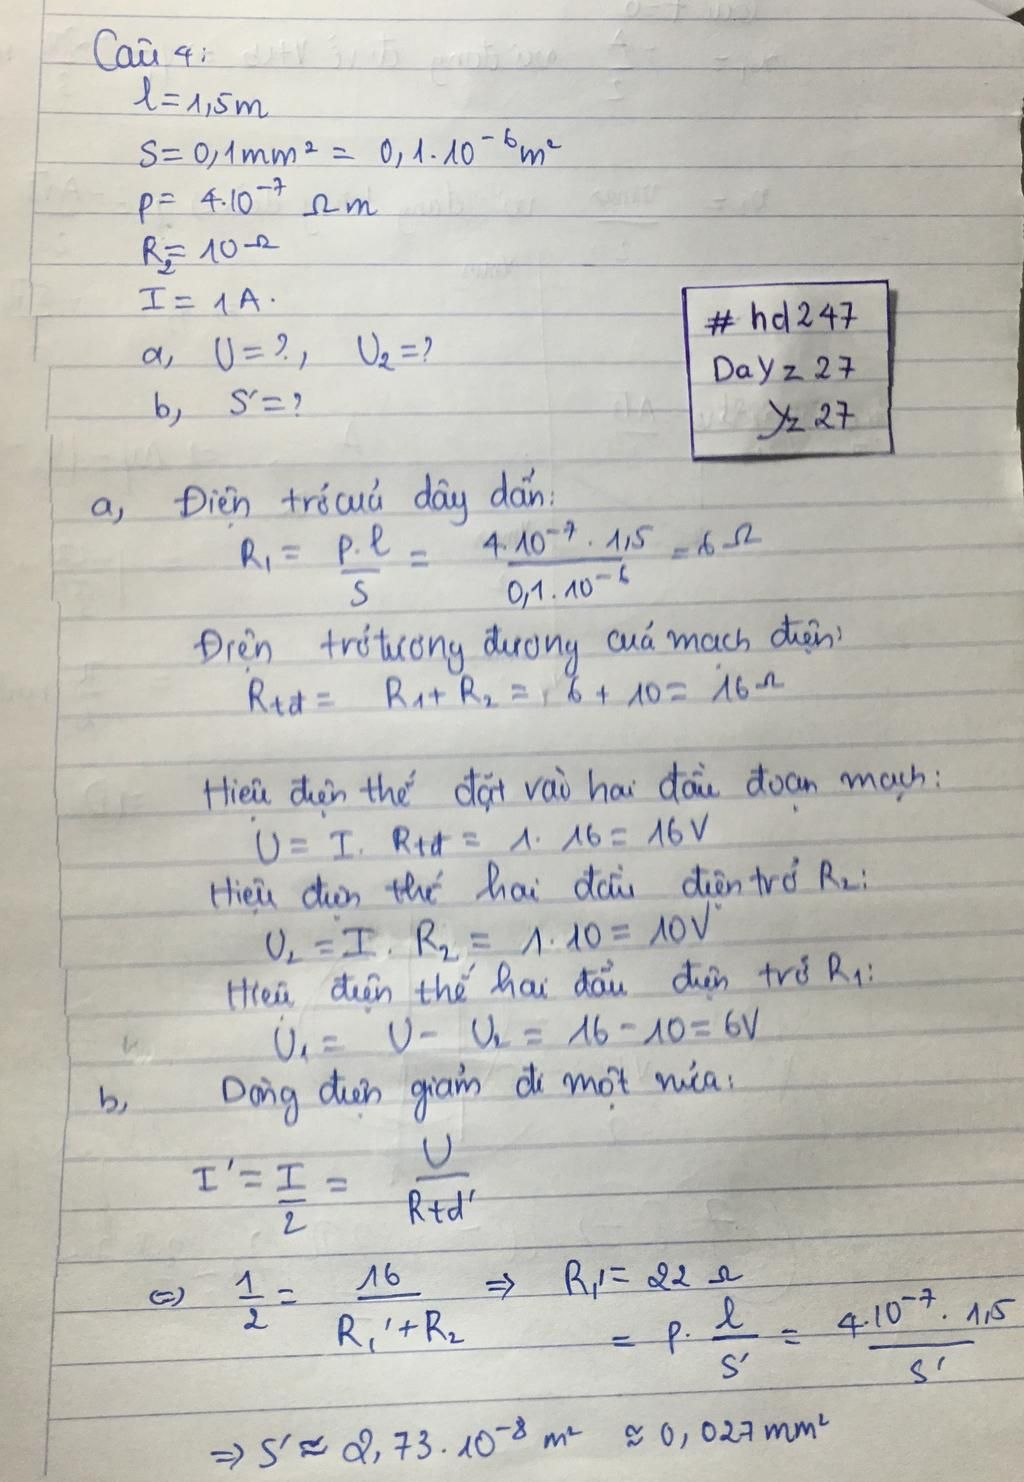 Câu 4:
l = 1,5m
S = 0,1mm² = 0,1.10⁻⁶m²
ρ = 4.10⁻⁷ Ωm
R₂ = 10Ω
I = 1A.
a, U = ?, U₂ = ?
b, S' = ?
# hd247
Dayz 27
yz 27
a, Điện trở của dây dẫn:
R₁ = ρ.l / S = 4.10⁻⁷ . 1,5 / 0,1.10⁻⁶ = 6Ω
Điện trở tương đương của mạch điện:
Rtđ = R₁ + R₂ = 6 + 10 = 16Ω
Hiệu điện thế đặt vào hai đầu đoạn mạch:
U = I. Rtđ = 1. 16 = 16V
Hiệu điện thế hai đầu điện trở R₂:
U₂ = I. R₂ = 1.10 = 10V
Hiệu điện thế hai đầu điện trở R₁:
U₁ = U - U₂ = 16 - 10 = 6V
b, Dòng điện giảm đi một nửa:
I' = I / 2 = U / Rtđ'
⇔ 1 / 2 = 16 / R₁' + R₂ ⇒ R₁' = 22 Ω
= ρ. l / S' = 4.10⁻⁷. 1,5 / S'
⇒ S' ≈ 2,73.10⁻⁸ m² ≈ 0,027mm²